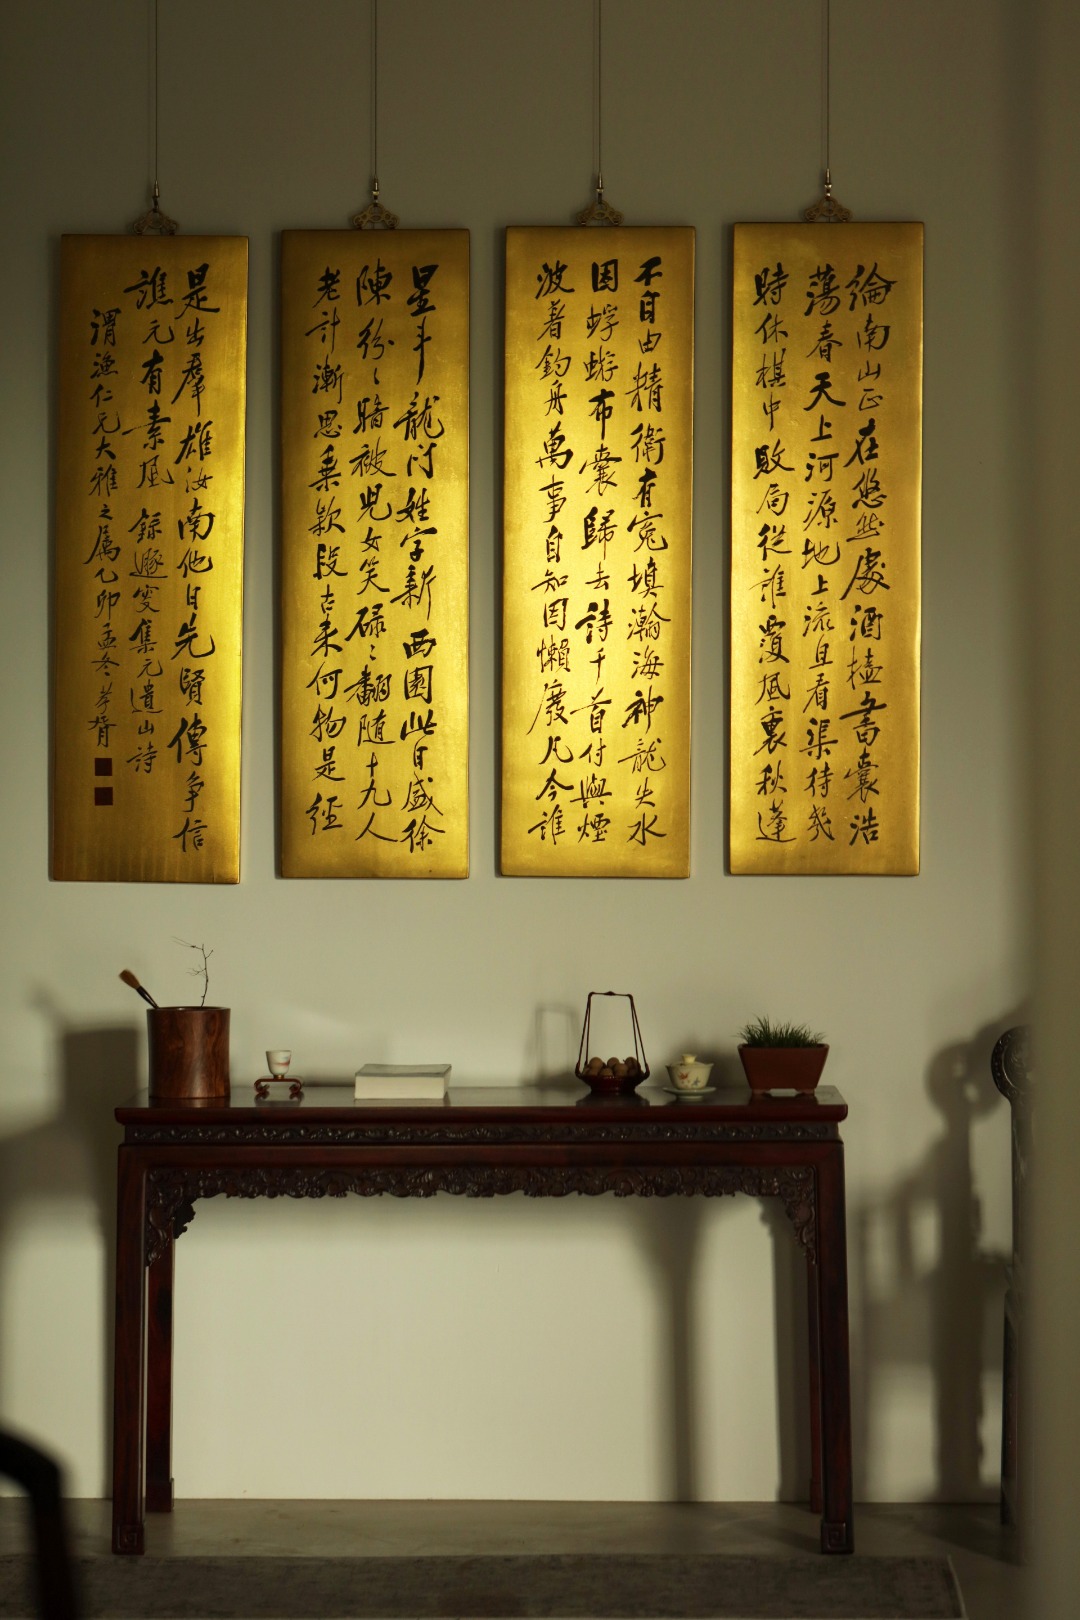 論南山正在悠然處酒榼書囊浩
蕩春天上河源地上流且看渠待幾
時休棋中敗局從誰覆風裏秋蓬
不自由精衛有寃填瀚海神龍失水
困蜉蝣布囊歸去詩千首付與煙
波著釣舟萬事自知因懶廢凡今誰
星斗龍門姓字新西園此日盛徐
陳紛〻暗被兒女笑碌〻翻隨十九人
老計漸思乘款段古來何物是經
是出羣雄汝南他日先賢傳爭信
譙元有素風 録遯叟集元遺山詩
渭漁仁兄大雅之属乙卯孟冬孝胥